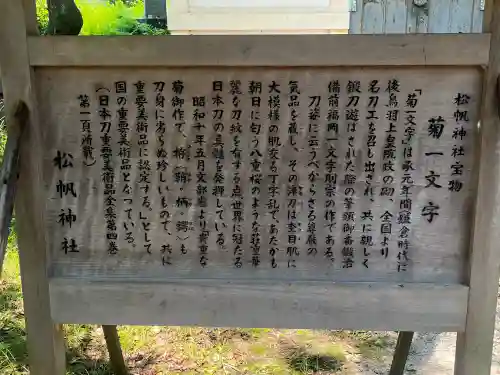 松帆神社宝物
菊一文字
「菊一文字」は承元年間鎌倉時代に
後鳥羽上皇院政の砌、全国より
名刀工を召し出され、共に親しく
鍛刀遊ばされた際の筆頭御番鍛冶
備前福岡一文字則宗の作である。
刀姿に云うべからざる尊厳の
気品を蔵し、その滓刀は杢目肌に
大模様の肌交る丁字乱で、あたかも
朝日に匂う八重桜のような荘重華
麗な刀紋を有する点世界に冠たる
日本刀の真髄を発揮している。
昭和十年五月文部省より貴重な
菊御作で、拵（鞘・柄・鍔）も
刀身に劣らぬ珍しいもので、共に
重要美術品と認定する。」として
国の重要美術品となっている。
（日本刀重要美術品全集第四巻
第一頁所載）
松帆神社